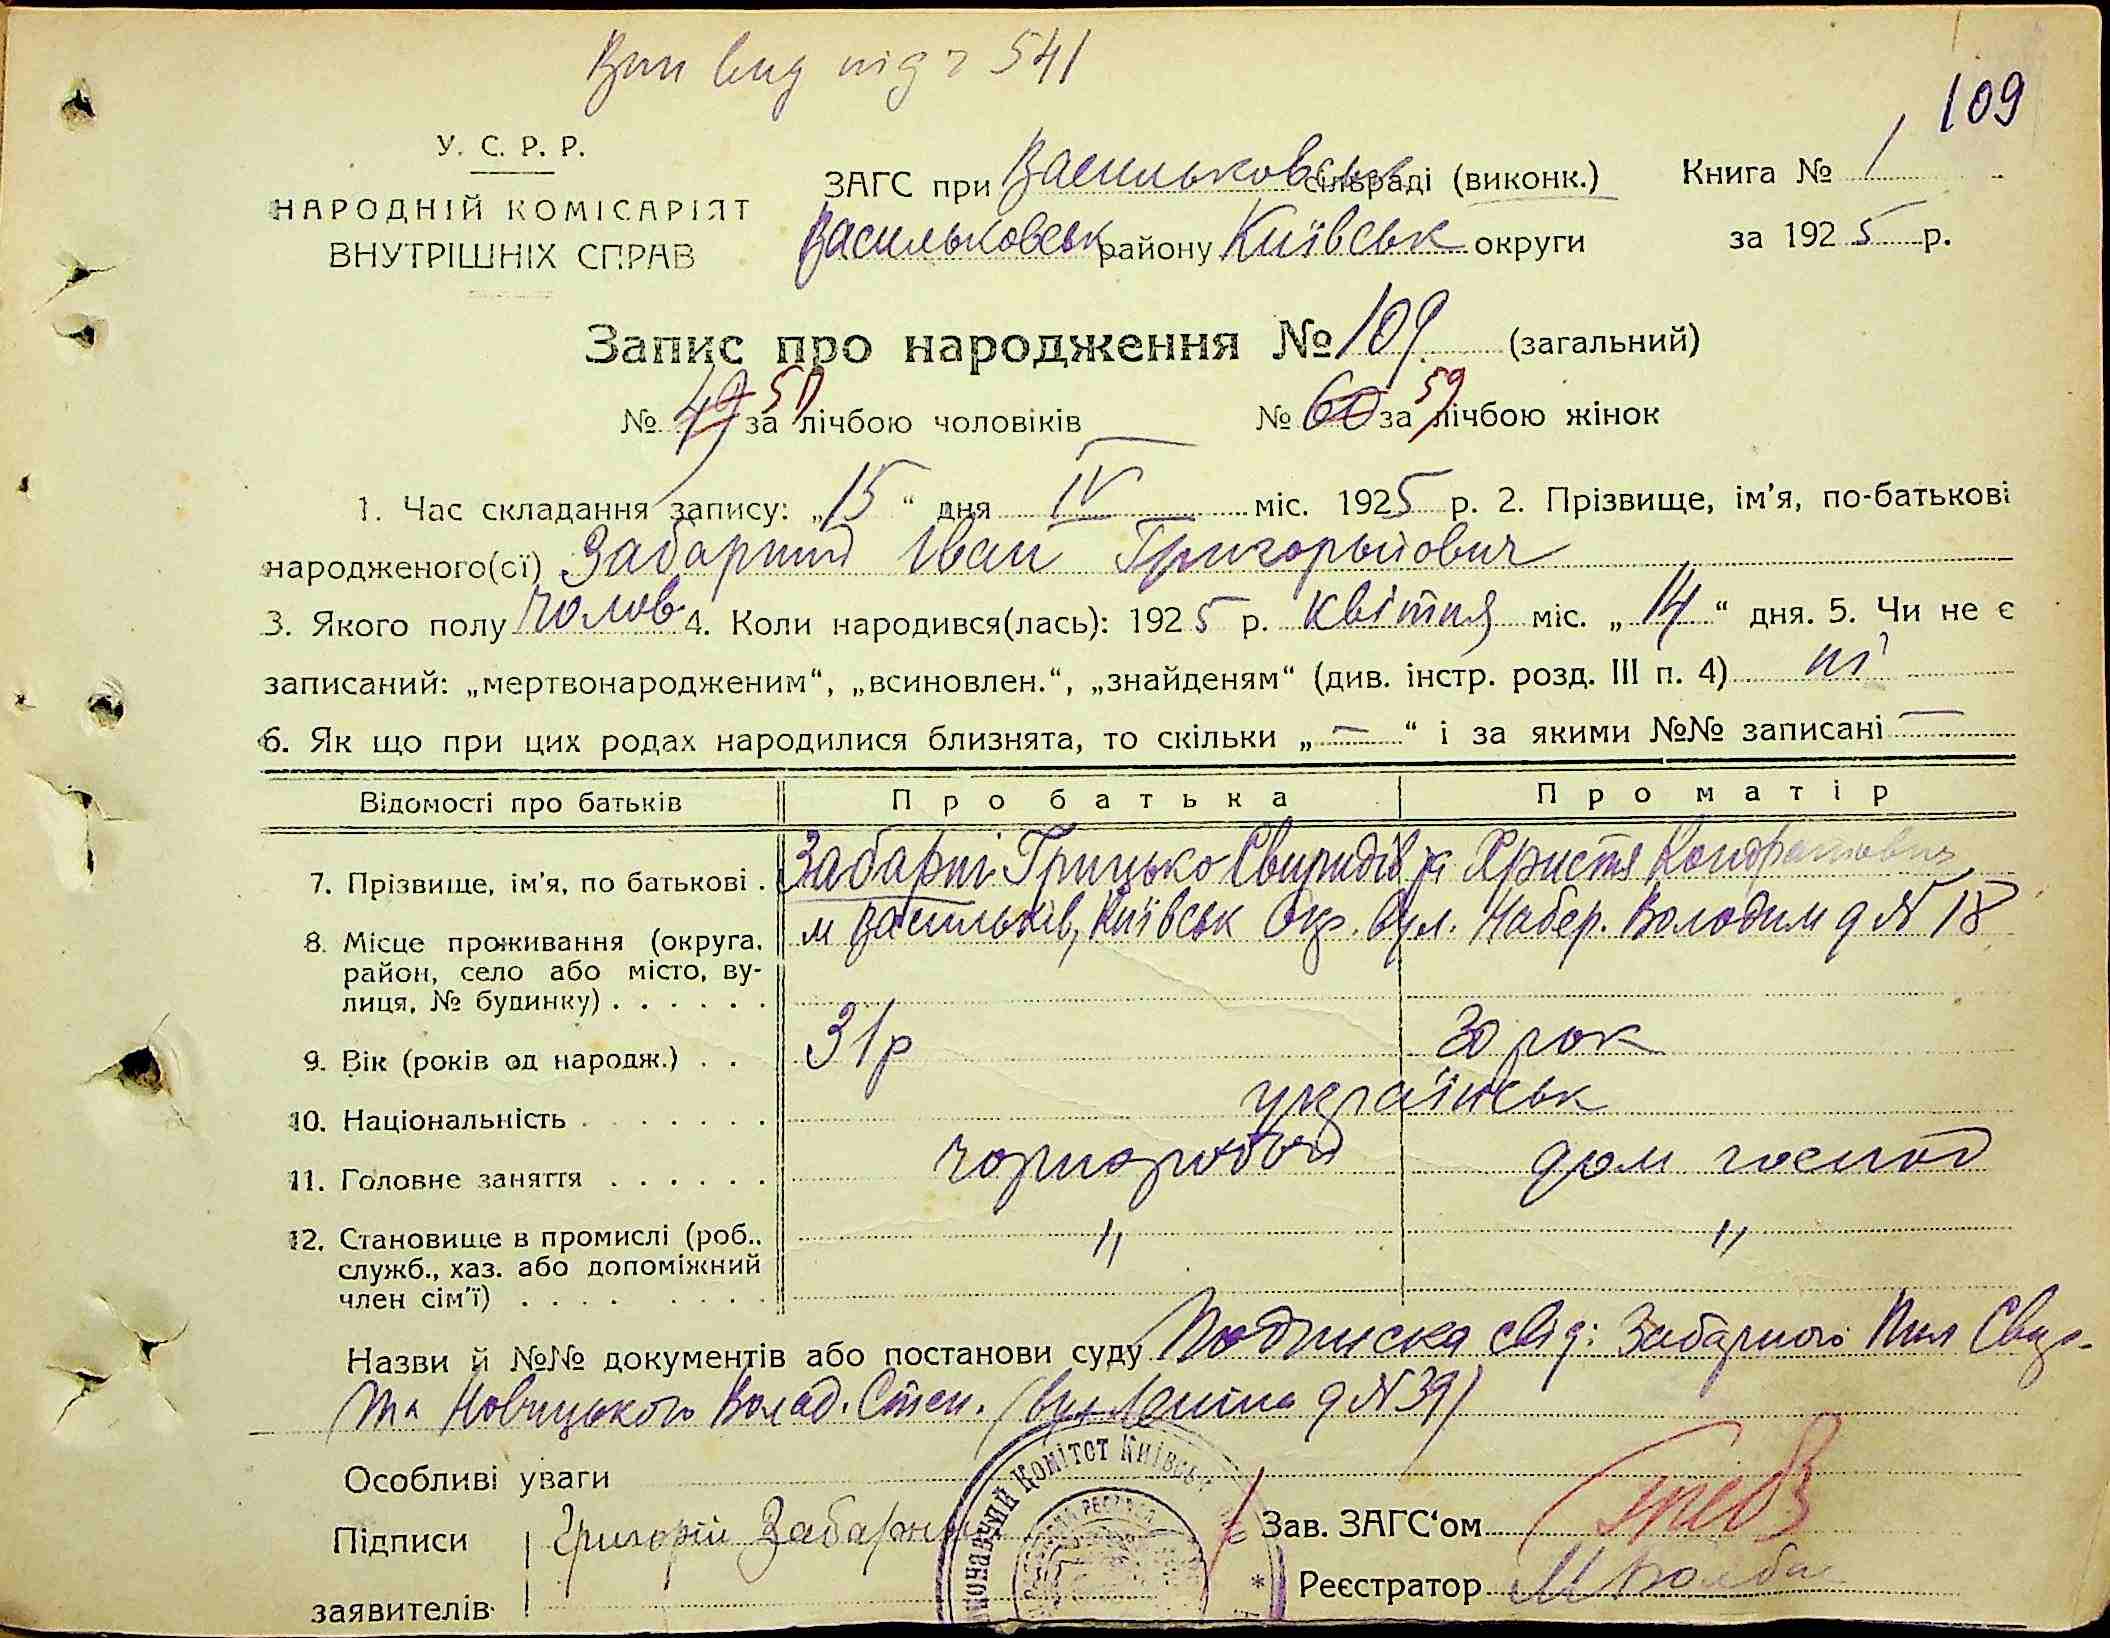 Вип вид під ч 541
109
У. С. Р. Р.
НАРОДНІЙ КОМІСАРІЯТ
ВНУТРІШНІХ СПРАВ
ЗАГС при Васильковськ сільраді (виконк.)
Васильковськ району Київськ округи
Книга № 1
за 1925 р.
Запис про народження № 109 (загальний)
№ 49 50 за лічбою чоловіків № 60 59 за лічбою жінок
1. Час складання запису: „15“ дня IV міс. 1925 р. 2. Прізвище, ім’я, по-батькові
народженого(ої) Забарний Іван Григорьйович
3. Якого полу чолов 4. Коли народився(лась): 1925 р. квітня міс. „14“ дня. 5. Чи не є
записаний: „мертвонародженим“, „всиновлен.“, „знайденям“ (див. інстр. розд. III п. 4) ні
6. Як що при цих родах народилися близнята, то скільки „—“ і за якими №№ записані —
Відомості про батьків Про батька Про матір
7. Прізвище, ім’я, по батькові . Забарні Грицько Свиридів та Христя Кондратовна
8. Місце проживання (округа, м Васильків, Київськ Окр. вул. Набер. Володим д № 18
район, село або місто, ву-
лиця, № будинку) . . . . . .
9. Вік (років од народж.) . . 31 р 30 рок
10. Національність . . . . . . . українськ
11. Головне заняття . . . . . . чорноробоч дом господ
12. Становище в промислі (роб., „ „
служб., хаз. або допоміжний
член сім’ї) . . . . . . . . .
Назви й №№ документів або постанови суду Подписка свід: Забарного Пил Свир.
та Новицького Волод. Степ. (вул Леніна д № 39)
Особливі уваги
Підписи Григорій Забарний
заявителів
Зав. ЗАГС‘ом
Реєстратор
КОМІТЕТ КИЇВСЬК